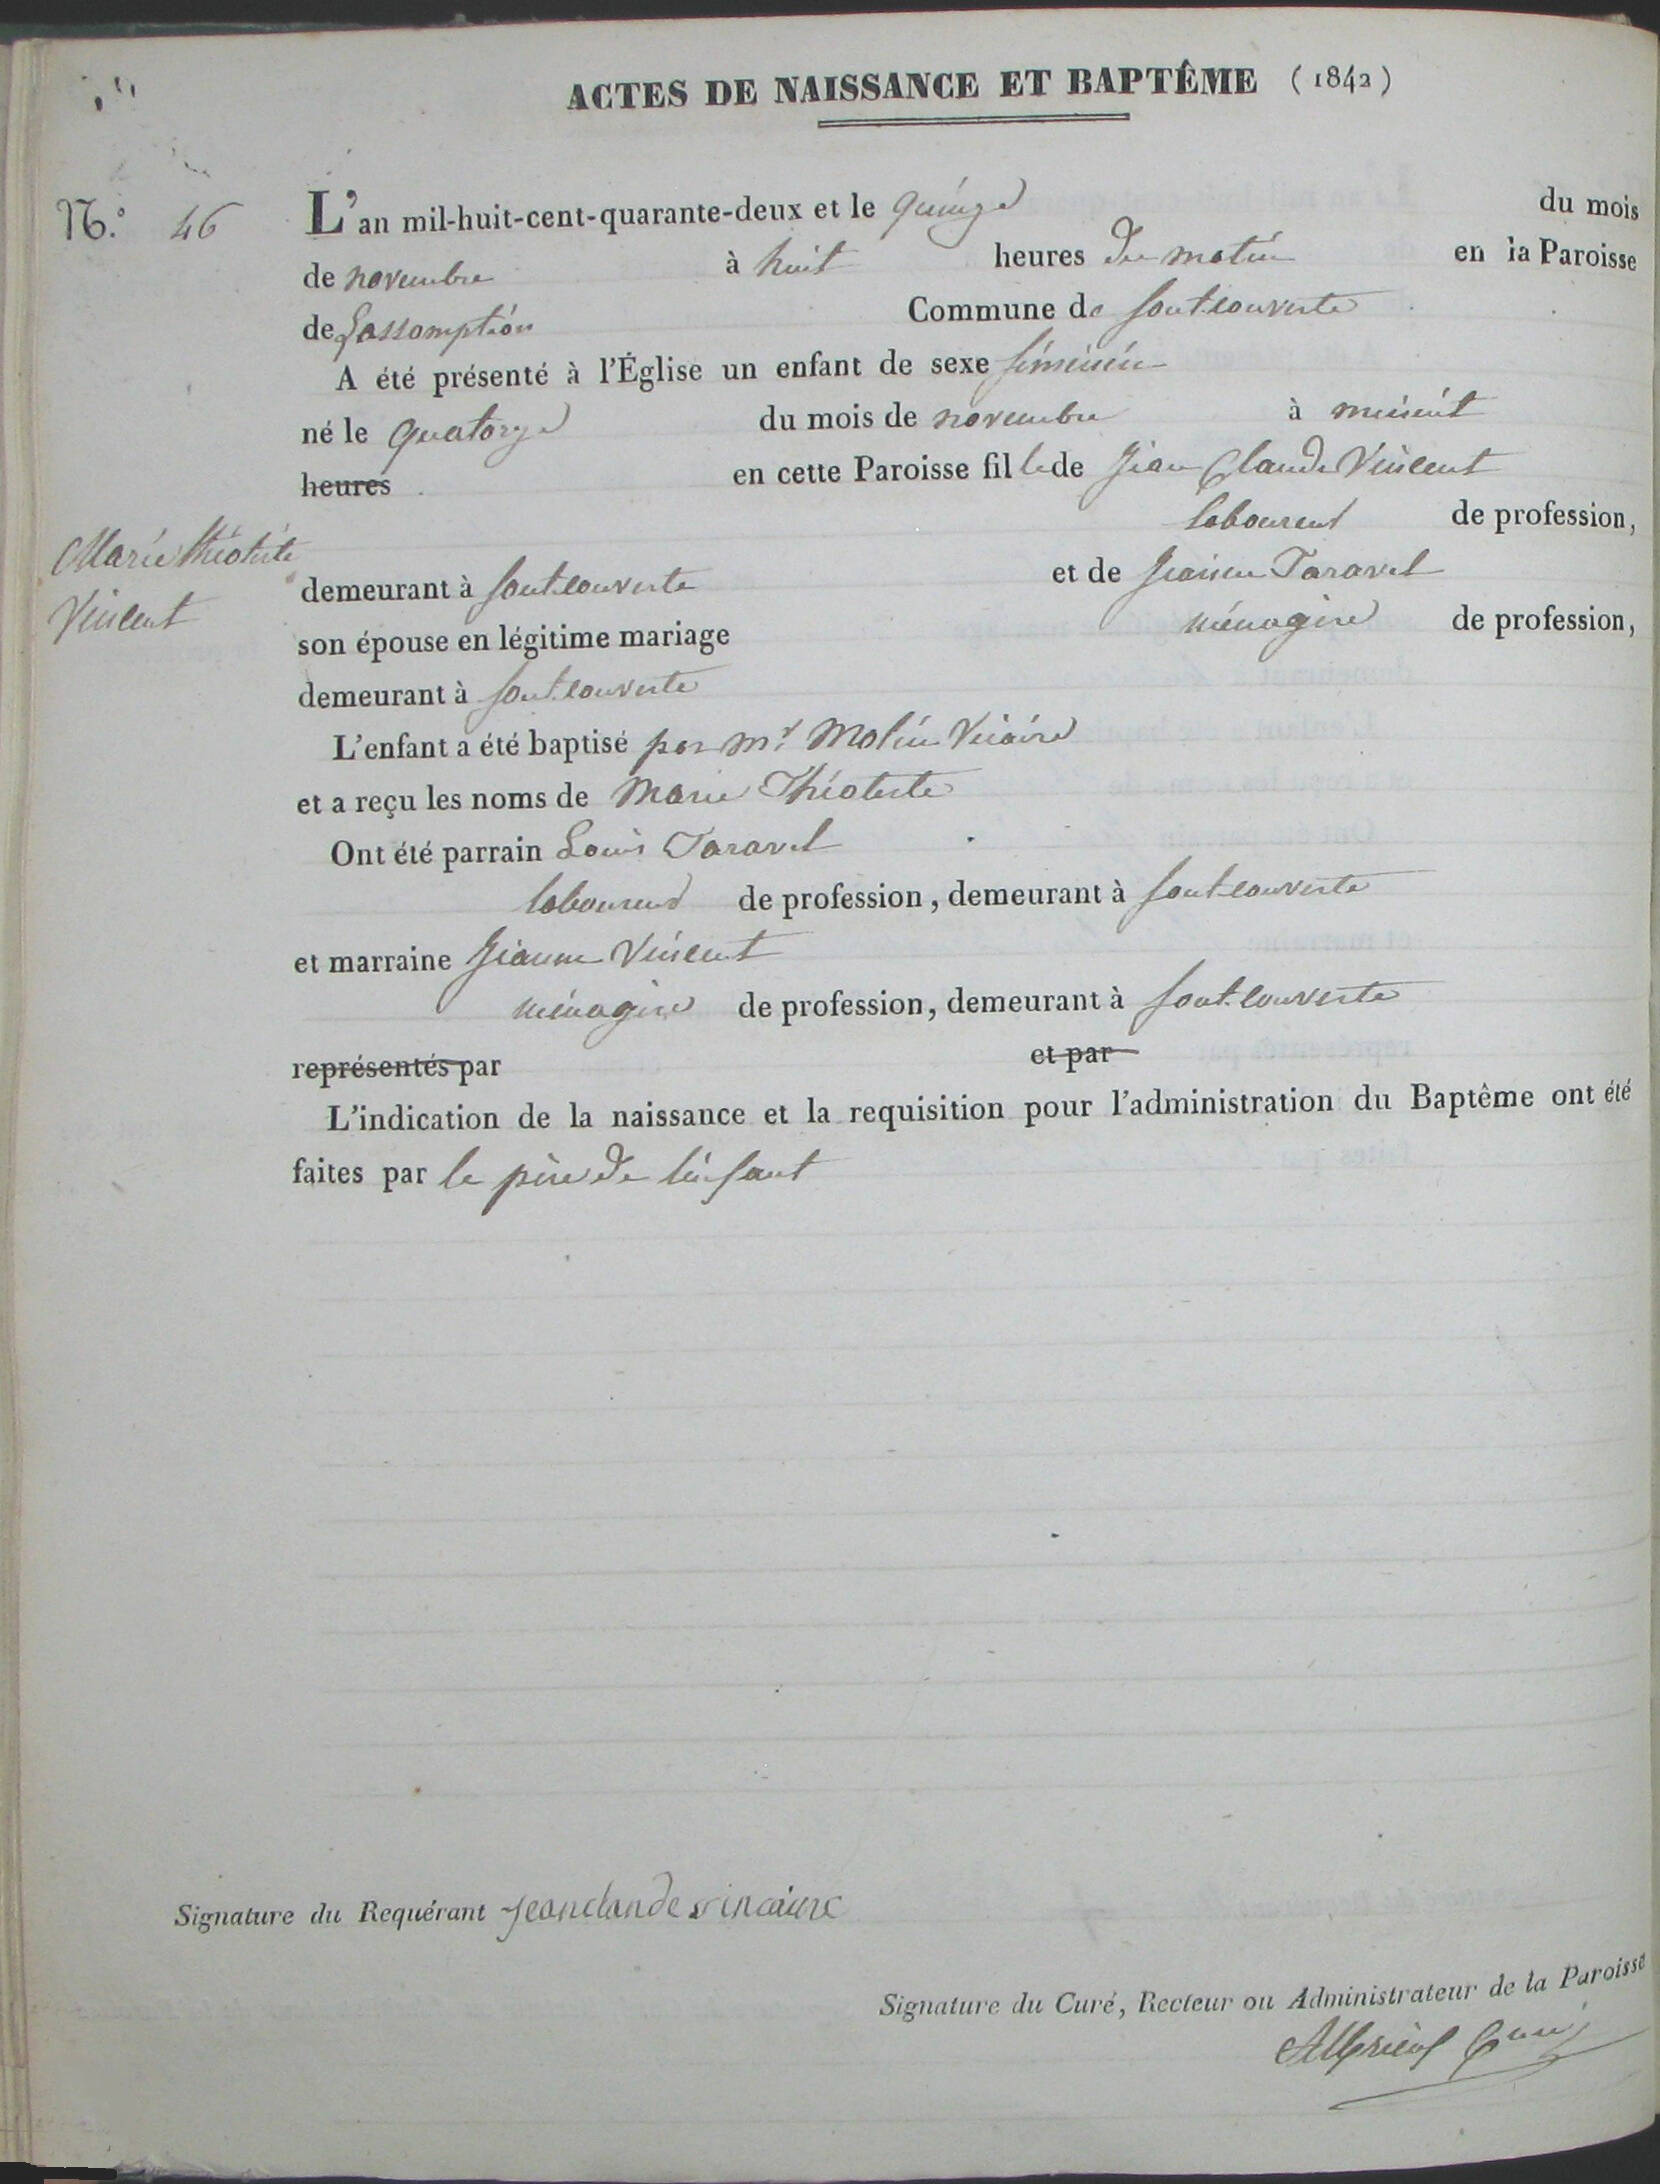 ACTES DE NAISSANCE ET BAPTÊME (1842)
N.° 46
L'an mil-huit-cent-quarante-deux et le quinze du mois
de novembre à huit heures du matin en la Paroisse
de Lassomption Commune de fontcouverte
A été présenté à l'Église un enfant de sexe féminin
né le quatorze du mois de novembre à minuit
heures en cette Paroisse fille de Jean Claude Vincent
laboureur de profession,
Marie Théotiste
Vincent
demeurant à fontcouverte et de Jeanne Taravel
son épouse en légitime mariage ménagère de profession,
demeurant à fontcouverte
L'enfant a été baptisé par mr. Molin Vicaire
et a reçu les noms de Marie Théotiste
Ont été parrain Louis Taravel
laboureur de profession, demeurant à fontcouverte
et marraine Jeanne Vincent
ménagère de profession, demeurant à fontcouverte
représentés par et par
L'indication de la naissance et la requisition pour l'administration du Baptême ont été
faites par le père de l'enfant
Signature du Requérant jeanclaude
Signature du Curé, Recteur ou Administrateur de la Paroisse
Curé